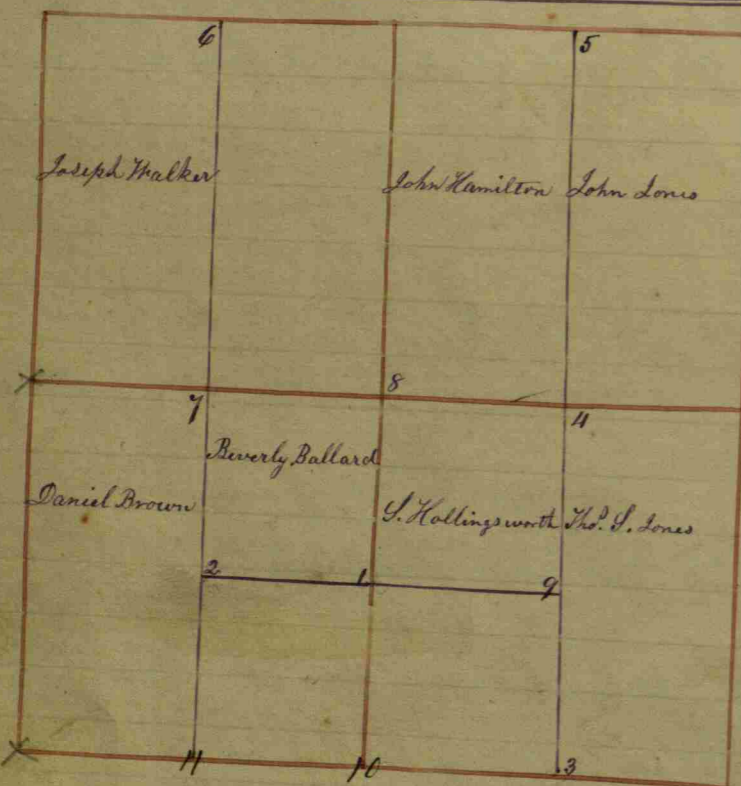 6
5
Joseph Walker
John Hamilton
John Jones
8
7
4
Beverly Ballard
Daniel Brown
S. Hollingsworth
Thos. S. Jones
2
1
9
11
10
3